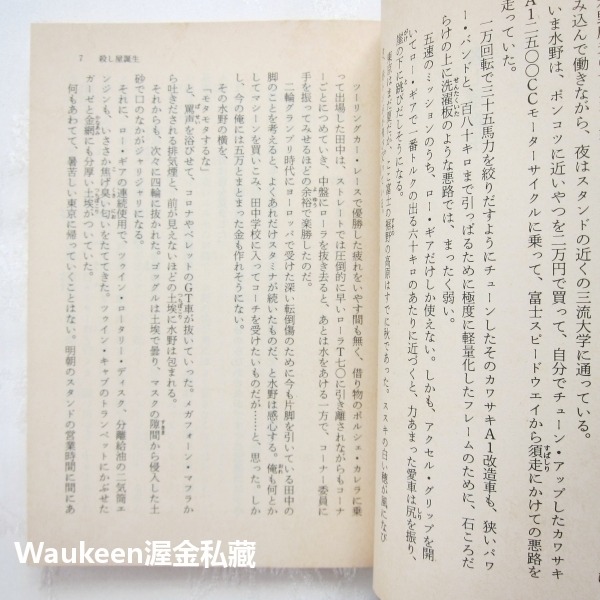 み込んで働きながら、夜はスタンドの近くの三流大学に通っている。
いま水野は、ポンコツに近いやつを二万円で買って、自分でチューン・アップしたカワサキ
A1二五〇〇CCモーターサイクルに乗って、富士スピードウェイから須走にかけての悪路を
走っていた。
一万回転で三十五馬力を絞りだすようにチューンしたそのカワサキA1改造車も、狭いパワ
ー・バンドと、百八十キロまで引っぱるために極度に軽量化したフレームのために、石ころだ
らけの上に洗濯板のような悪路では、まったく弱い。
五速のミッションのうち、ロー・ギアだけしか使えない。しかも、アクセル・グリップを開
いてロー・ギアで一番トルクの出る六十キロのあたりに近づくと、力あまった愛車は尻を振り、
崖の下に跳びだしそうになる。
東京はまだ夏だが、ここ富士の裾野の高原はすでに秋であった。ススキの白い穂が風になび
7 殺し屋誕生
ツーリングカー・レースで優勝した疲れをいやす間も無く、借り物のポルシェ・カレラに乗
って出場した田中は、ストレートでは圧倒的に早いローラT七〇に引き離されながらもコーナ
ーごとにつめていき、中盤にローラを抜き去ると、あとは水をあける一方で、コーナー委員に
手を振ってみせるほどの余裕で楽勝したのだ。
二輪グランプリ時代にヨーロッパで受けた深い転倒傷のために今も片脚を引いている田中の
脚のことを考えると、よくあれだけスタミナが続いたものだ、と水野は感心する。俺も何とか
してマシーンを買いこみ、田中学校に入ってコーチを受けたいものだが……と、思った。しか
し、今の俺には五万とまとまった金も作れそうにない。
その水野の横を、
「モタモタするな」
と、罵声を浴びせて、コロナやベレットのGT車が抜いていった。メガフォーン・マフラか
ら吐きだされる排気煙と、前が見えないほどの土埃に水野は包まれる。
それからも、次々に四輪に抜かれた。ゴッグルは土埃で曇り、マスクの隙間から侵入した土
砂で口のなかがジャリジャリになる。
それに、ロー・ギアの連続使用で、ツウィン・ロータリー・ディスク、分離給油の二気筒エ
ンジンも、いささか焦げ臭い匂いをたててきた。ツウィン・キャブのトランペットにかぶせた
ガーゼと金網にも分厚い土埃がついていた。
何もあわてて、暑苦しい東京に帰っていくことはない。明朝のスタンドの営業時間に間にあ
Waukeen渥金私藏